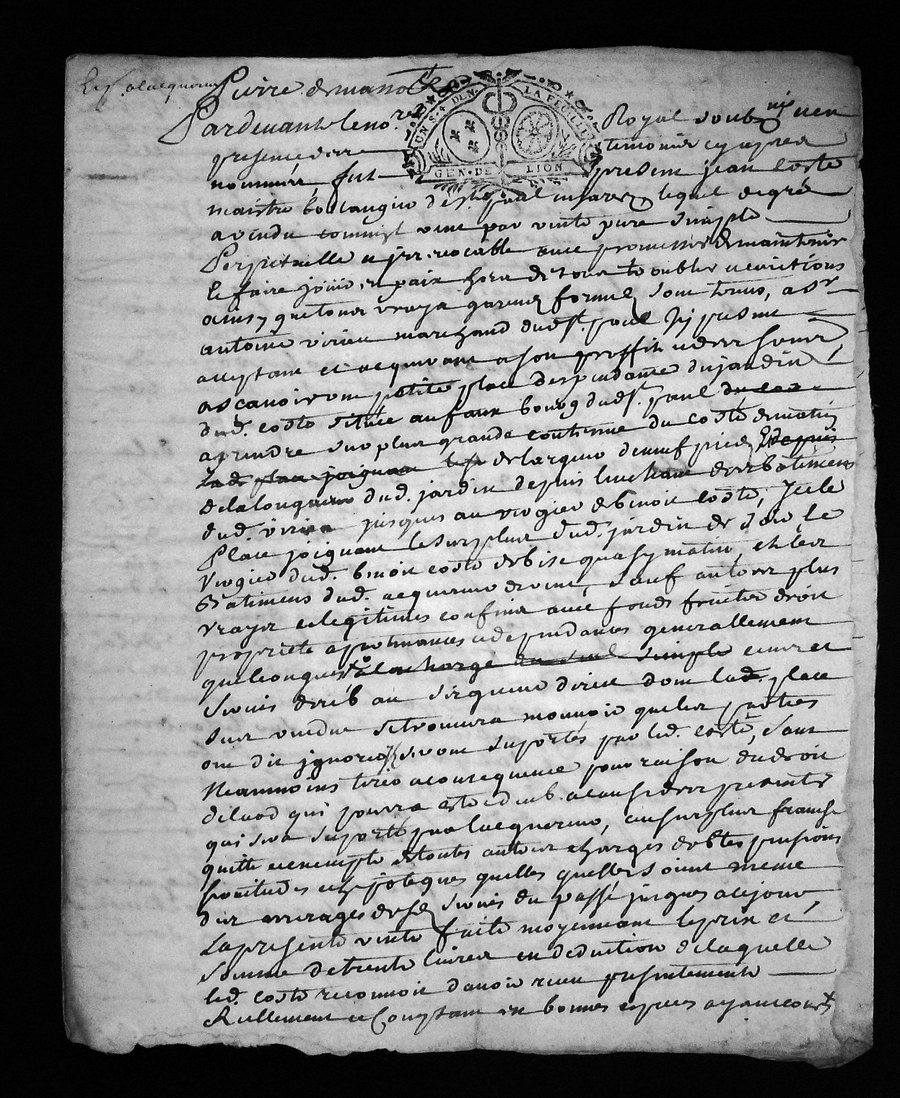 UN S. 4 DEN. LA FEUILLE
GEN. DE LION
Pardevant le no.re Royal soub.né en
presence des temoins cy apres
nommés, fut present jean coste
maistre boulangier de s.t paul lequel de gré
a vendu comme il vend par vente pure simple
Perpetuelle et irrevocable avec promesse de maintenir
et faire jouir en paix hors de tous troubles et evictions
antoine virieu marchand dud. s.t paul icy present
acceptant et acquerant a son proffit et des siens
ascavoir une petite place dependante du jardin
dud. coste située au faux bourg dud. s.t paul
a prendre sur plus grande contenue du costé de matin
de largeur de neuf pieds
de la longueur dud. jardin depuis des batimens
dud. virieu jusques au vergier de benoit coste, Icelle
Place joignant le surplus dud. jardin de soir, le
vergier dud. benoit coste de bise quasy matin, et les
Batimens dud. acquereur sauf autres plus
vrayes et legitimes confins avec fonds fruits droits
proprieté apartenances et dependances generallement
quelconques a la charge simple cens et
servis deub au seigneur direct dont lad. place
sus vendue se trouvera mouvoir que les parties
ont dit ignorer seront suportés par led. coste, sans
Neanmoins tirer a consequence pour raison du droit
de laod qui pourra estre deub a cause des presentes
qui sera suporté par l'acquereur, au surplus franche
quitte et exempte de toutes autres charges debtes pensions
servitudes et hipoteques quelles quelles soient meme
des arrerages de servis du passé jusques a ce jour
La presente vente faite moyennant le prix et
somme de trente livres en deduction de laquelle
led. coste reconnoit d'avoir receu presentement
Reellement et Comptant en bonnes especes ayant cours